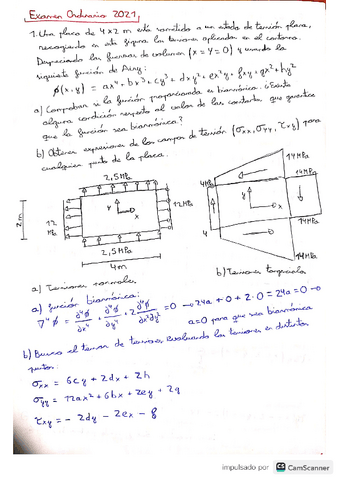 Examen Ordinario 2021,
1. Una placa de 4x2 m está sometida a un estado de tensión plana,
recogiendo en esta figura las tensiones aplicadas en el contorno.
Despreciando las fuerzas de volumen (X = Y = 0) y usando la
siguiente función de Airy:
φ(x,y) = ax⁴ + bx³ + cy³ + dxy² + ex²y + fxy + gx² + hy²
a) Comprobar si la función proporcionada es biarmónica. ¿Existe
alguna condición respecto al valor de las constantes que garantice
que la función sea biarmónica?
b) Obtener expresiones de los campos de tensión (σxx, σyy, τxy) para
cualquier punto de la placa.
2,5MPa
12 MPa
12MPa
y
x
2m
2,5MPa
4m
14MPa
4MPa
14MPa
y
x
4
14MPa
14MPa
a) Tensiones normales,
b) Tensiones tangenciales
a) función biarmónica:
∇⁴φ = ∂⁴φ/∂x⁴ + ∂⁴φ/∂y⁴ + 2 ∂⁴φ/∂x²∂y² = 0 → 24a + 0 + 2·0 = 24a = 0 →
a=0 para que sea biarmónica
b) Busco el tensor de tensiones evaluando las tensiones en distintos
puntos:
σxx = 6cy + 2dx + 2h
σyy = 12ax² + 6bx + 2ey + 2g
τxy = - 2dy - 2ex - f
impulsado por CS CamScanner